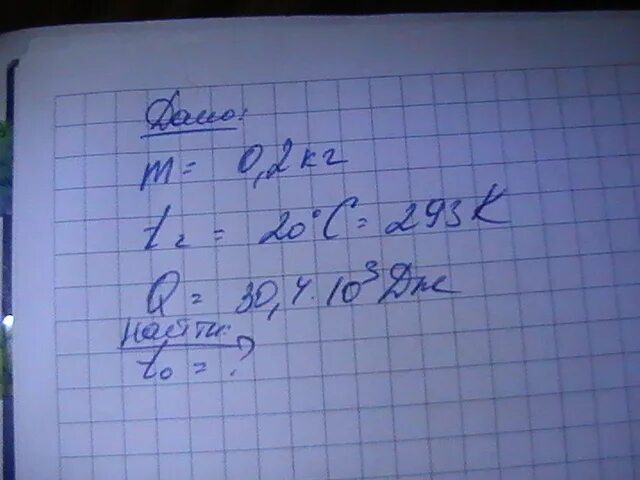 Дано:
m = 0,2 кг
t₂ = 20°C = 293 K
Q = 30,4·10³ Дж
Найти:
t₀ = ?